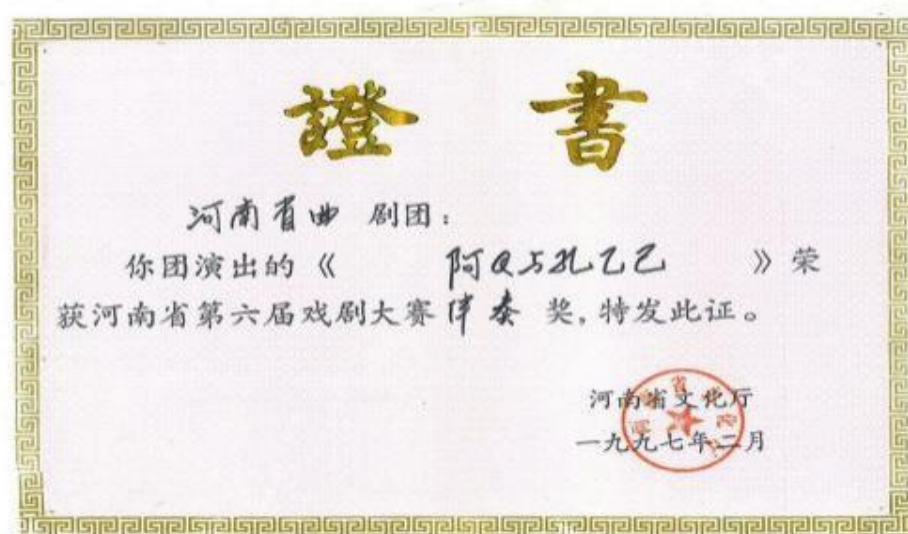 證 書
河南省曲 剧团：
你团演出的《 阿Q与孔乙己 》荣
获河南省第六届戏剧大赛伴奏 奖，特发此证。
河南省文化厅
一九九七年二月